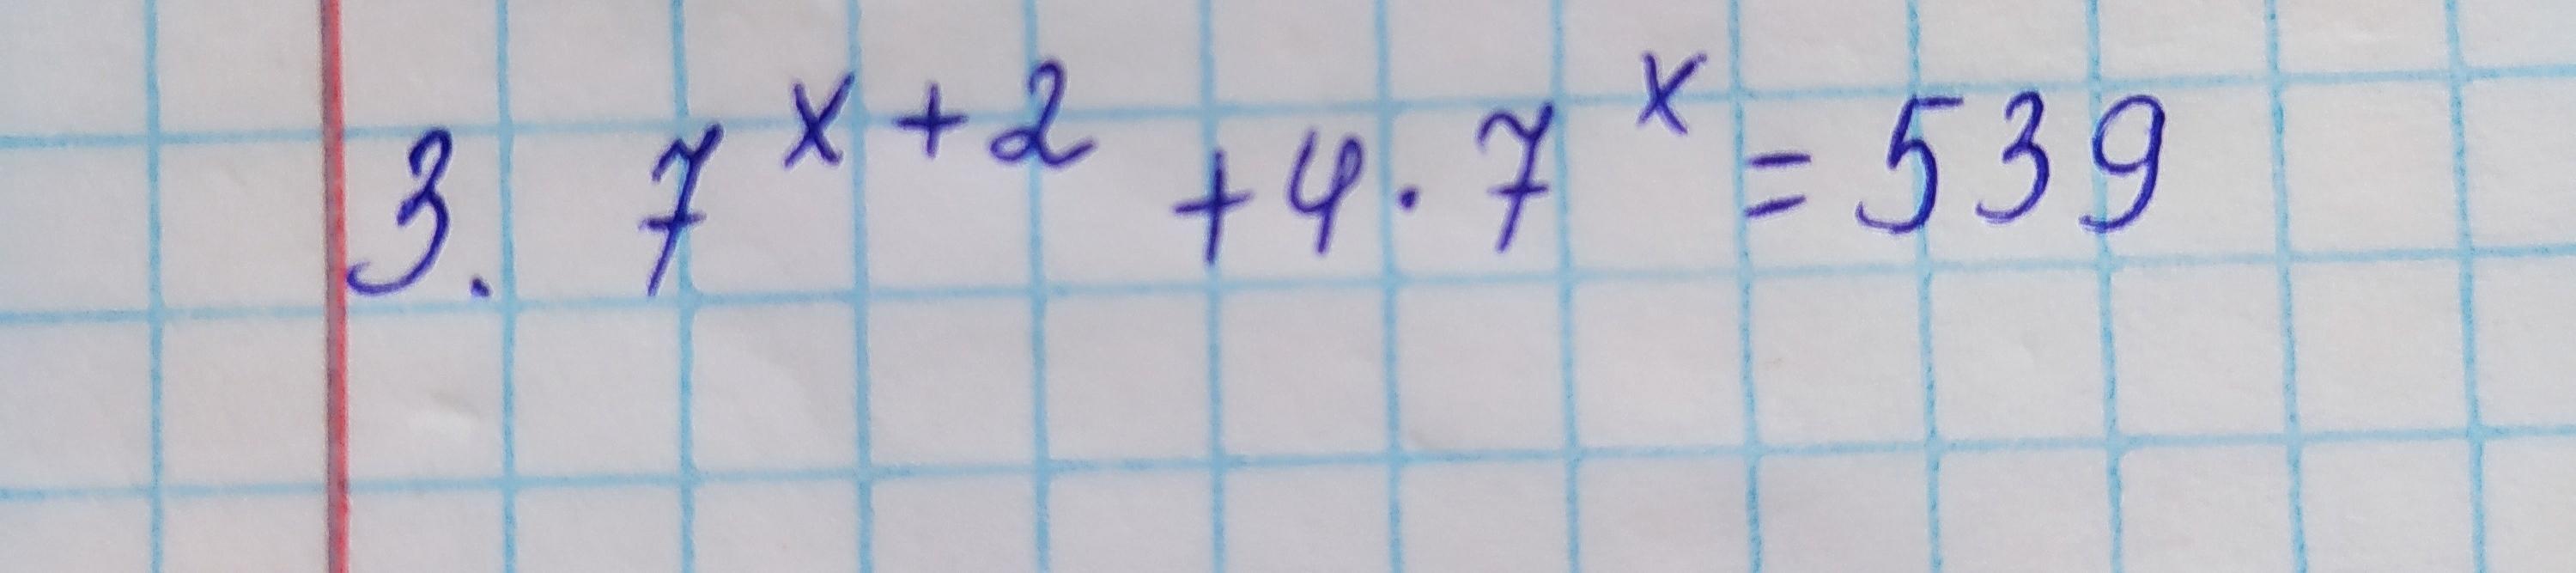 3. 7^{x+2} + 4 · 7^x = 539